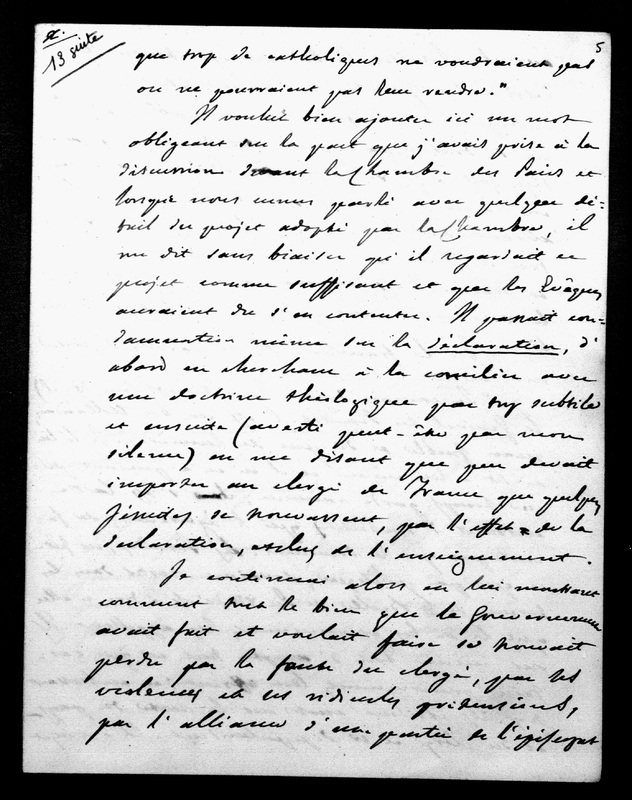 13 suite
5
que trop de catholiques ne voudraient pas
ou ne pourraient pas leur rendre."
Il voulut bien ajouter ici un mot
obligeant sur la part que j'avais prise à la
discussion devant la Chambre des Pairs et
lorsque nous eumes parlé avec quelque dé-
tail du projet adopté par la Chambre, il
me dit sans biaiser qu'il regardait ce
projet comme suffisant et que les Evêques
auraient du s'en contenter. Il passait con-
damnation même sur la déclaration, d'
abord en cherchant à la concilier avec
une doctrine théologique par trop subtile
et ensuite (averti peut-être par mon
silence) en me disant que peu devait
importer au clergé de France que quelques
Jésuites se trouvassent, par l'effet de la
déclaration, exclus de l'enseignement.
Je continuai alors en lui montrant
comment tout le bien que le Gouvernement
avait fait et voulait faire se trouvait
perdu par la faute du clergé, par ses
violences et ses ridicules prétensions,
par l'alliance d'une partie de l'épiscopat